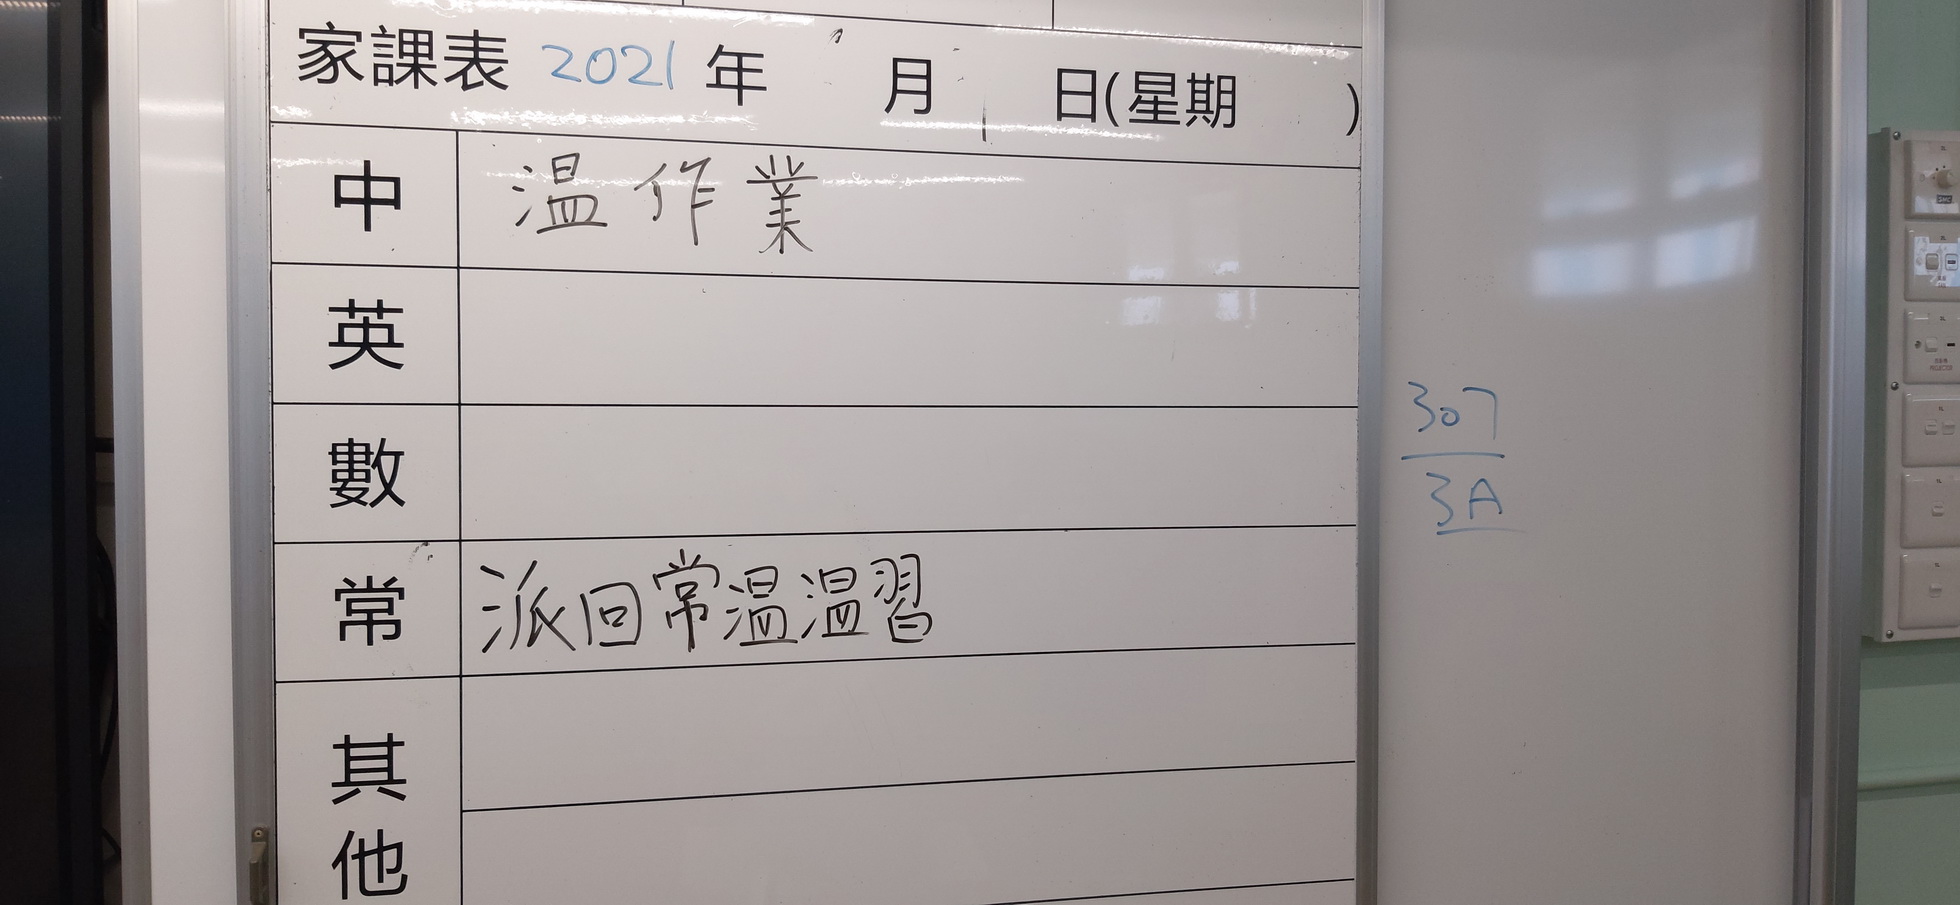 家課表 2021 年 月 日(星期 )
中 温作業
英
數
常 派回常温温習
其他
307
3A